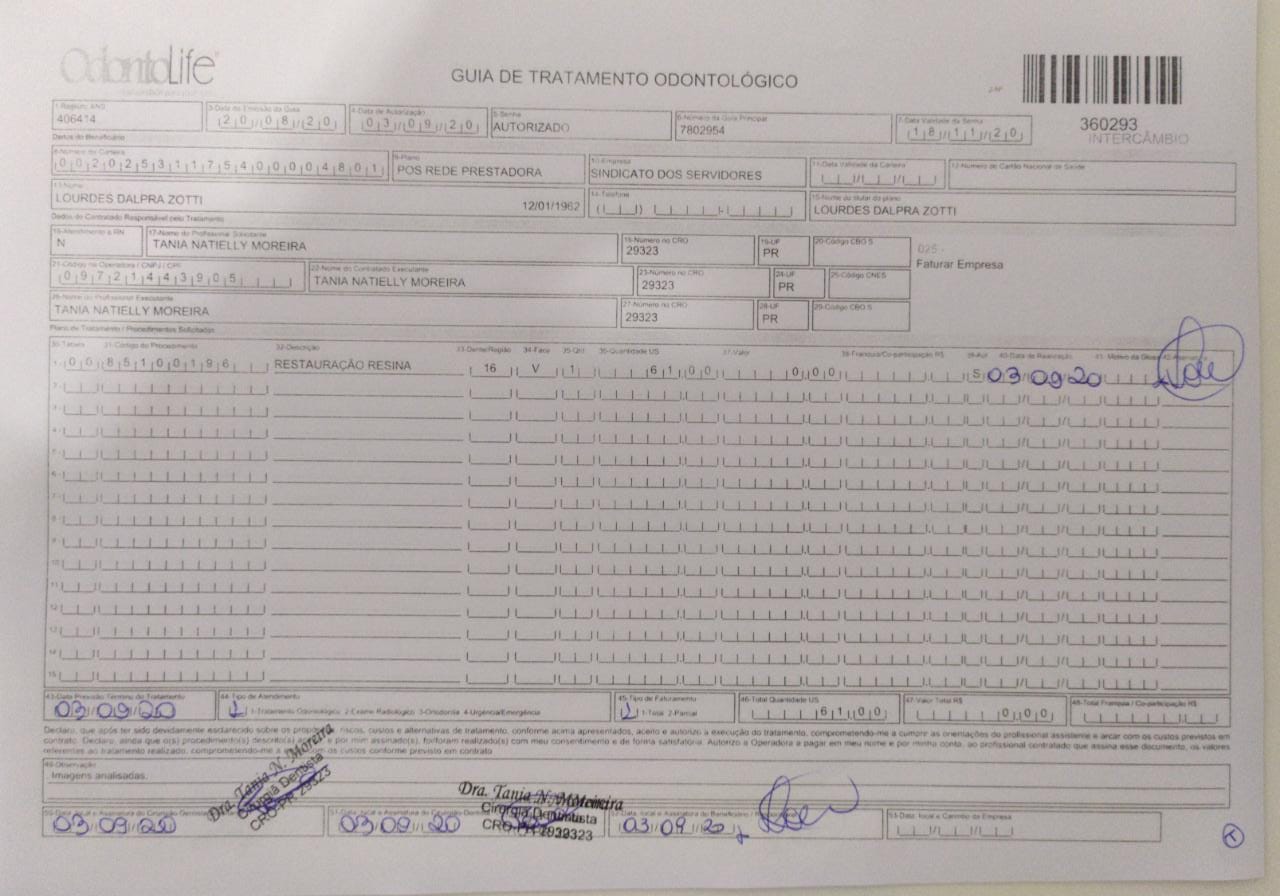 OdontoLife
GUIA DE TRATAMENTO ODONTOLÓGICO
360293
INTERCÂMBIO
1-Registro ANS
406414
3-Data de Emissão da Guia
20/08/20
4-Data de Autorização
03/09/20
5-Senha
AUTORIZADO
6-Número da Guia Principal
7802954
7-Data Validade da Senha
18/11/20
Dados do Beneficiário
8-Número da Carteira
00202531175400004801
9-Plano
POS REDE PRESTADORA
10-Empresa
SINDICATO DOS SERVIDORES
11-Data Validade da Carteira
12-Número do Cartão Nacional de Saúde
13-Nome
LOURDES DALPRA ZOTTI
12/01/1962
14-Telefone
15-Nome do titular do plano
LOURDES DALPRA ZOTTI
Dados do Contratado Responsável pelo Tratamento
16-Atendimento a RN
N
17-Nome do Profissional Solicitante
TANIA NATIELLY MOREIRA
18-Número no CRO
29323
19-UF
PR
20-Código CBO S
025 -
Faturar Empresa
21-Código na Operadora / CNPJ / CPF
09721443905
22-Nome do Contratado Executante
TANIA NATIELLY MOREIRA
23-Número no CRO
29323
24-UF
PR
25-Código CNES
26-Nome do Profissional Executante
TANIA NATIELLY MOREIRA
27-Número no CRO
29323
28-UF
PR
29-Código CBO S
Plano de Tratamento / Procedimentos Solicitados
30-Tabela 31-Código do Procedimento 32-Descrição 33-Dente/Região 34-Face 35-Qtd 36-Quantidade US 37-Valor 38-Franquia/Co-participação R$ 39-Aut 40-Data de Realização 41-Motivo da Glosa 42-Assinatura
1- 00 85100196 RESTAURAÇÃO RESINA 16 V 1 61 00 0 00 S 03/09/20
2-
3-
4-
5-
6-
7-
8-
9-
10-
11-
12-
13-
14-
15-
43-Data Previsão Término do Tratamento
03/09/20
44-Tipo de Atendimento
1 1-Tratamento Odontológico 2-Exame Radiológico 3-Ortodontia 4-Urgência/Emergência
45-Tipo de Faturamento
1 1-Total 2-Parcial
46-Total Quantidade US
61 00
47-Valor Total R$
0 00
48-Total Franquia / Co-participação R$
Declaro, que após ter sido devidamente esclarecido sobre os propósitos, riscos, custos e alternativas de tratamento, conforme acima apresentados, aceito e autorizo a execução do tratamento, comprometendo-me a cumprir as orientações do profissional assistente e arcar com os custos previstos em
contrato. Declaro, ainda que o(s) procedimento(s) descrito(s) acima, e por mim assinado(s), foi/foram realizado(s) com meu consentimento e de forma satisfatória. Autorizo a Operadora a pagar em meu nome e por minha conta, ao profissional contratado que assina esse documento, os valores
referentes ao tratamento realizado, comprometendo-me a arcar com os custos conforme previsto em contrato
49-Observação
Imagens analisadas.
Dra. Tania N. Moreira
Cirurgiã Dentista
CRO-PR 29323
Dra. Tania N. Moreira
Cirurgiã Dentista
CRO-PR 29323
03/09/20
03/09/20
52-Data, local e Assinatura do Beneficiário
03/09/20
53-Data, local e Carimbo da Empresa